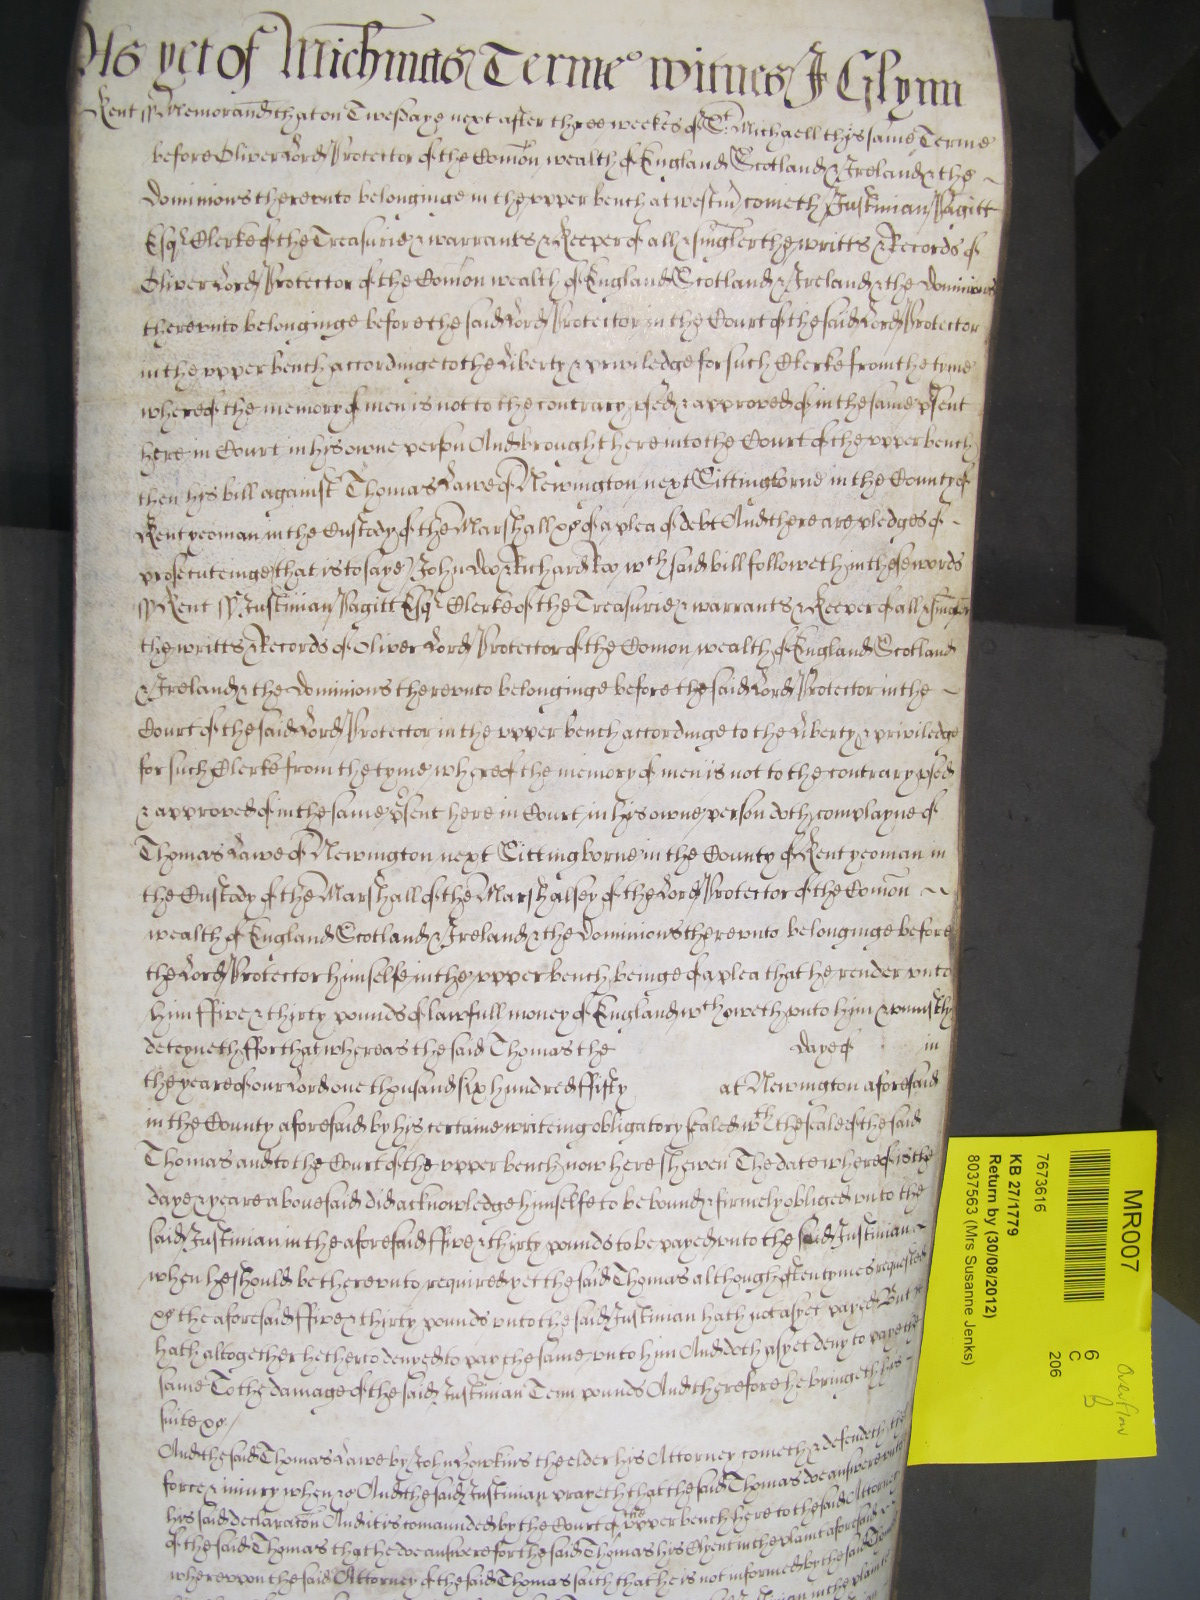 As yet of Michmas Terme witnes J Glynn
Kent ss Memorand that on Twesdaye next after three weekes of St Michaell this same Terme
before Oliver Lord Protector of the Comon wealth of England Scotland & Ireland & the
Dominions therevnto belonginge in the vpper bench at westm cometh Justinian Pagitt
Esqr Clerke of the Treasurie & warrants & Keeper of all & singler the writts & Records of
Oliver Lord Protector of the Comon wealth of England Scotland & Ireland & the Dominions
therevnto belonginge before the said Lord Protector in the Court of the said Lord Protector
in the vpper bench accordinge to the Liberty & priviledge for such Clerke from the tyme
whereof the memory of men is not to the contrary vsed & approved of in the same psent
here in Court in his owne person And brought here into the Court of the vpper bench
then his bill against Thomas Lawe of Newington next Sittingborne in the County of
Kent yeoman in the Custody of the Marshall &c of a plea of debt And there are pledges of
prosecuteinge that is to saye John Doo & Richard Roo wth said bill followeth in these words
ss Kent ss Justinian Pagitt Esqr Clerke of the Treasurie & warrants & Keeper of all & singler
the writts & Records of Oliver Lord Protector of the Comon wealth of England Scotland
& Ireland & the Dominions therevnto belonginge before the said Lord Protector in the
Court of the said Lord Protector in the vpper bench accordinge to the Liberty & priviledge
for such Clerke from the tyme whereof the memory of men is not to the contrary vsed
& approved of in the same psent here in Court in his owne person doth complayne of
Thomas Lawe of Newington next Sittingborne in the County of Kent yeoman in
the Custody of the Marshall of the Marshalsey of the Lord Protector of the Comon
wealth of England Scotland & Ireland & the Dominions therevnto belonginge before
the Lord Protector himselfe in the vpper bench beinge of a plea that he render vnto
him ffive & thirty pounds of lawfull money of England wch oweth vnto him & vniustly
deteyneth ffor that whereas the said Thomas the daye of in
the yeare of our Lord one thousand six hundred ffifty at Newington aforesaid
in the County aforesaid by his certaine writeing obligatory sealed wth the seale of the said
Thomas and to the Court of the vpper bench now here shewen The date whereof is the
daye & yeare aboue said did acknowledge himselfe to be bound & firmely obliged vnto the
said Justinian in the aforesaid ffive & thirty pounds to be payed vnto the said Justinian
when he should be therevnto required yet the said Thomas although often tymes requested
&c the aforesaid ffive & thirty pounds vnto the said Justinian hath not as yet payed But
hath altogether hetherto denyed to pay the same vnto him And doth as yet deny to paye the
same To the damage of the said Justinian Tenn pounds And therefore he bringeth his
suite &c
And the said Thomas Lawe by John Howkins the elder his Attorney cometh & defendeth the
force & iniury when &c And the said Justinian prayeth that the said Thomas doe answere vnto
his said declaration And it is comaunded by the Court of the vpper bench here to the said Attorney
of the said Thomas that he doe answere for the said Thomas his Clyent in the plaint aforesaid
wherevpon the said Attorney of the said Thomas saith that he is not informed by the said
MR007
7673616
KB 27/1779
Return by (30/08/2012)
8037563 (Mrs Susanne Jenks)
6
C
206
Overflow
B